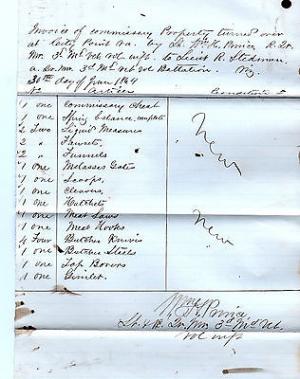 Invoice of commissary Property turned over
at City Point Va. by Lt. Wm H.
Mr. 3d Md Vet Vol inf. to Lieut R. Steckman
a. Qr. Mr. 3d Md Vet Vol Battalion. Viz.
30th day of June 1864
No Articles Condition
1 one Commissary Chest
1 one Spring balance, complete
2 Two Liquid Measure
2 " Faucets
2 " Funnels
1 one Molasses Gates
1 one Scoops
1 one Cleavers
1 one Hatchets
1 one Meat Saws
1 one Meat Hooks
4 Four Butcher Knives
1 one Butcher Steels
1 one Tap Borers
1 one Gimlet
New
New
Wm H.
Lt. & R. Qr. Mr. 3d Md Vet.
Vol inf